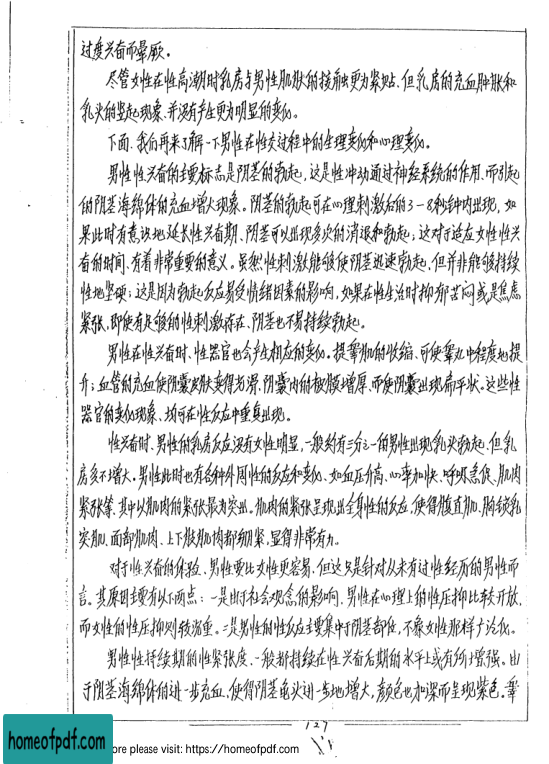 过度兴奋而晕厥。
尽管女性在性高潮时乳房与男性肌肤的接触更为紧贴、但乳房的充血肿胀和
乳头的竖起现象、并没有产生更为明显的变化。
下面、我们再来了解一下男性在性交过程中的生理变化和心理变化。
男性性兴奋的主要标志是阴茎的勃起，这是性冲动通过神经系统的作用、而引起
的阴茎海绵体的充血增大现象。阴茎的勃起可在心理刺激后的3-8秒钟内出现，如
果此时有意识地延长性兴奋期、阴茎可以出现多次的消退和勃起；这对于适应女性性兴
奋的时间、有着非常重要的意义。虽然性刺激能够使阴茎迅速勃起，但并非能够持续
性地坚硬；这是因为勃起反应易受情绪因素的影响，如果在性生活时抑郁苦闷或是焦虑
紧张，即使有足够的性刺激存在、阴茎也不易持续勃起。
男性在性兴奋时、性器官也会产生相应的变化。提睾肌的收缩、可使睾丸中程度地提
升；血管的充血使阴囊皮肤变得光滑、阴囊内的极膜增厚、而使阴囊出现扁平状。这些性
器官的变化现象、均可在性反应中重复出现。
性兴奋时、男性的乳房反应没有女性明显，一般约有三分之一的男性出现乳头勃起、但乳
房多不增大。男性此时也有各种外周性的反应和变化、如血压升高、心率加快、呼吸急促、肌肉
紧张等、其中以肌肉的紧张最为突出。肌肉的紧张呈现出全身性的反应，使得腹直肌、胸锁乳
突肌、面部肌肉、上下肢肌肉都绷紧，显得非常有力。
对于性兴奋的体验、男性要比女性更容易、但这只是针对从未有过性经历的男性而
言。其原因主要有以下两点：一是出于社会观念的影响、男性在心理上的性压抑比较开放，
而女性的性压抑则较沉重。二是男性的性反应主要集中于阴茎部位，不象女性那样广泛化。
男性性持续期的性紧张度、一般都持续在性兴奋后期的水平上或有所增强。由
于阴茎海绵体的进一步充血、使得阴茎龟头进一步地增大，颜色也加深而呈现紫色。睾
127
homeofpdf.com
ore please visit: https://homeofpdf.com